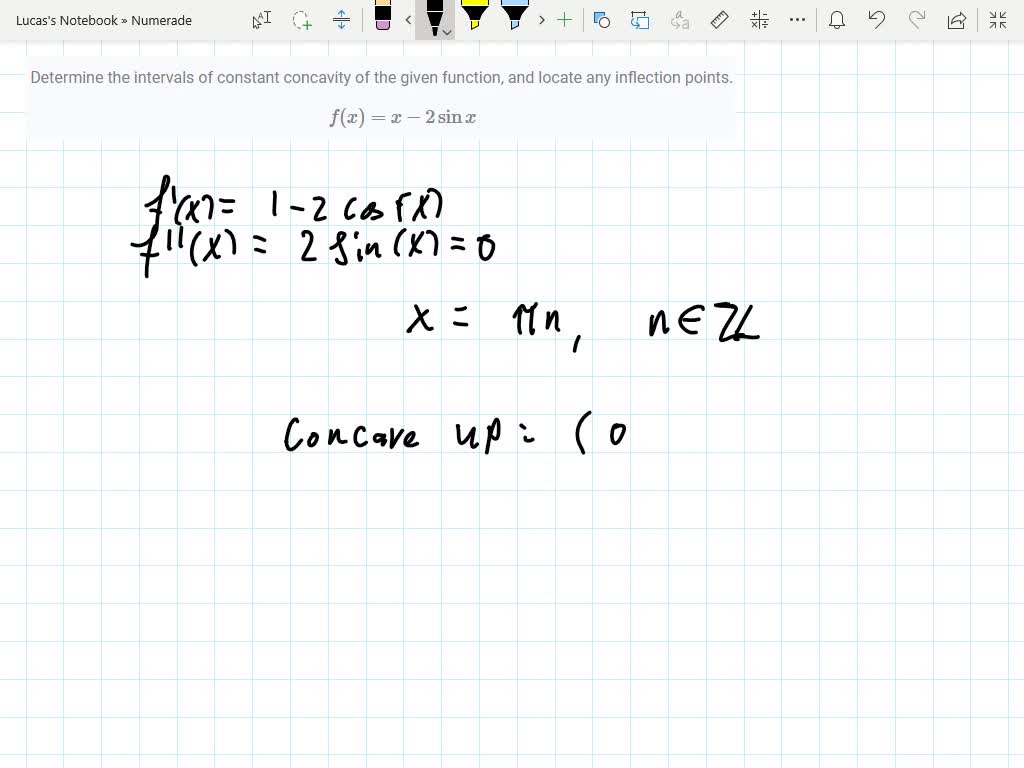 Lucas's Notebook » Numerade
Determine the intervals of constant concavity of the given function, and locate any inflection points.
f(x) = x − 2 sin x
f'(x) = 1 - 2 cos(x)
f''(x) = 2 sin(x) = 0
x = πn, n ∈ ℤ
Concave up: ( 0